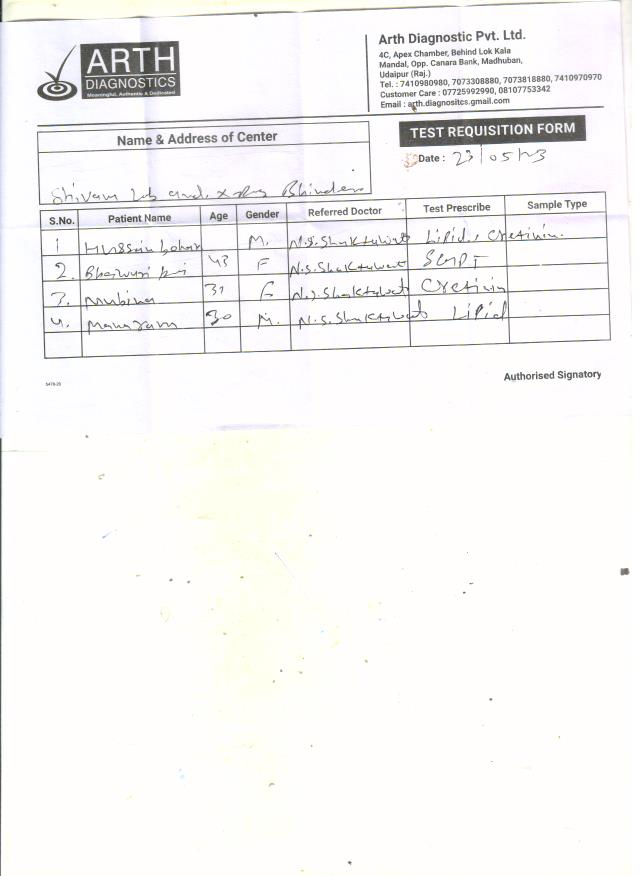 ARTH
DIAGNOSTICS
Meaningful, Authentic & Dedicated
Arth Diagnostic Pvt. Ltd.
4C, Apex Chamber, Behind Lok Kala
Mandal, Opp. Canara Bank, Madhuban,
Udaipur (Raj.)
Tel. : 7410980980, 7073308880, 7073818880, 7410970970
Customer Care : 07725992990, 08107753342
Email : arth.diagnositcs.gmail.com
Name & Address of Center
TEST REQUISITION FORM
Date : 23/05/23
Shivam Lab and. x Ray Bhinder
S.No. Patient Name Age Gender Referred Doctor Test Prescribe Sample Type
1 Hussain M. N.S. Shaktawat Lipid., Cretinin.
2. 43 F N.S. Shaktawat SGPT
3. Mubina 31 F N.S. Shaktawat Cretinin
4. Manaram 30 M. N.S. Shaktawat Lipid
5478-20
Authorised Signatory